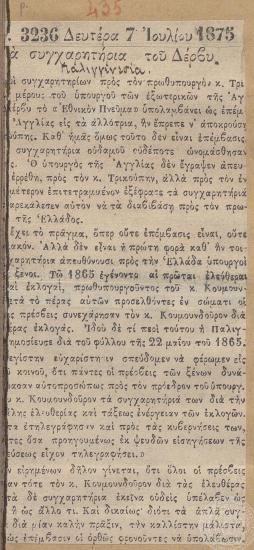 ρ.
435
3236 Δευτέρα 7 Ἰουλίου 1875
ὰ συγχαρητήρια τοῦ Δέρβυ.
Παλιγγενεσία.
ὶ συγχαρητηρίων πρὸς τὸν πρωθυπουργὸν κ. Τρι
μέρους τοῦ ὑπουργοῦ τῶν ἐξωτερικῶν τῆς Ἀγ
έρβυ τὸ «Ἐθνικὸν Πνεῦμα» ὑπολαμβάνει ὡς ἐπέμ
Ἀγγλίας εἰς τὰ ἀλλότρια, ἣν ἔπρεπε ν' ἀποκρούσῃ
ούπης. Καθ' ἡμᾶς ὅμως τοῦτο δὲν εἶναι ἐπέμβασις.
συγχαρητήρια οὐδαμοῦ οὐδέποτε ὠνομάσθησαν
ς. Ὁ ὑπουργὸς τῆς Ἀγγλίας δὲν ἔγραψεν ἀπευ
ερρέθη, πρὸς τὸν κ. Τρικούπην, ἀλλὰ πρὸς τὸν ἐν
μέτερον ἐπιτετραμμένον ἐξέφρασε τὰ συγχαρητήριά
αρεκάλεσεν αὐτὸν νὰ τὰ διαβιβάσῃ πρὸς τὸν πρω
τῆς Ἑλλάδος.
ἔχει τὸ πρᾶγμα, ὅπερ οὔτε ἐπέμβασις εἶναι, οὔτε
ακόν. Ἀλλὰ δὲν εἶναι ἡ πρώτη φορὰ καθ' ἣν τοι
χαρητήρια ἀπευθύνουσι πρὸς τὴν Ἑλλάδα ὑπουργοὶ
ξένοι. Τῷ 1865 ἐγένοντο αἱ πρῶται ἐλεύθεραι
αὶ ἐκλογαί, πρωθυπουργοῦντος τοῦ κ. Κουμουν
ετὰ τὸ πέρας αὐτῶν προσελθόντες ἐν σώματι οἱ
εις πρέσβεις συνεχάρησαν τὸν κ. Κουμουνδοῦρον διὰ
έρας ἐκλογάς. Ἰδοὺ δὲ τί περὶ τούτου ἡ Παλιγ
ημοσίευσε διὰ τοῦ φύλλου τῆς 22 μαΐου τοῦ 1865.
εγίστην εὐχαρίστησιν σπεύδομεν νὰ φέρωμεν εἰς
ῦ κοινοῦ, ὅτι πάντες οἱ πρέσβεις τῶν ξένων δυνάμ
ασαν αὐτοπροσώπως πρὸς τὸν πρόεδρον τοῦ ὑπουργ.
κ. Κουμουνδοῦρον τὰ συγχαρητήριά των διὰ τὴν
δης ἐλευθερίας καὶ τάξεως ἐνέργειαν τῶν ἐκλογῶν.
τα ἐτηλεγράφησαν καὶ πρὸς τὰς κυβερνήσεις των,
τες ὅσα προηγουμένως ἐκ ψευδῶν εἰσηγήσεων τῆς
εύσεως εἶχον τηλεγραφήσει.»
ν εἰρημένων δῆλον γίνεται, ὅτι ὅλοι οἱ πρέσβεις
αν τότε τὸν κ. Κουμουνδοῦρον διὰ τὰς ἐλευθέρας
τὰ δὲ συγχαρητήρια ἐκεῖνα οὐδεὶς ὑπέλαβεν ὡς
ἢ ὡς ἄλλο τι. Καὶ δικαίως· διότι τὰ ἁπλᾶ συγ
διὰ μίαν καλὴν πρᾶξιν, τὴν καλλίστην μάλιστα,
ὡς ἐπέμβασιν οἱ ὀρθῶς φρονοῦντες νὰ ὑπολάβωσιν.